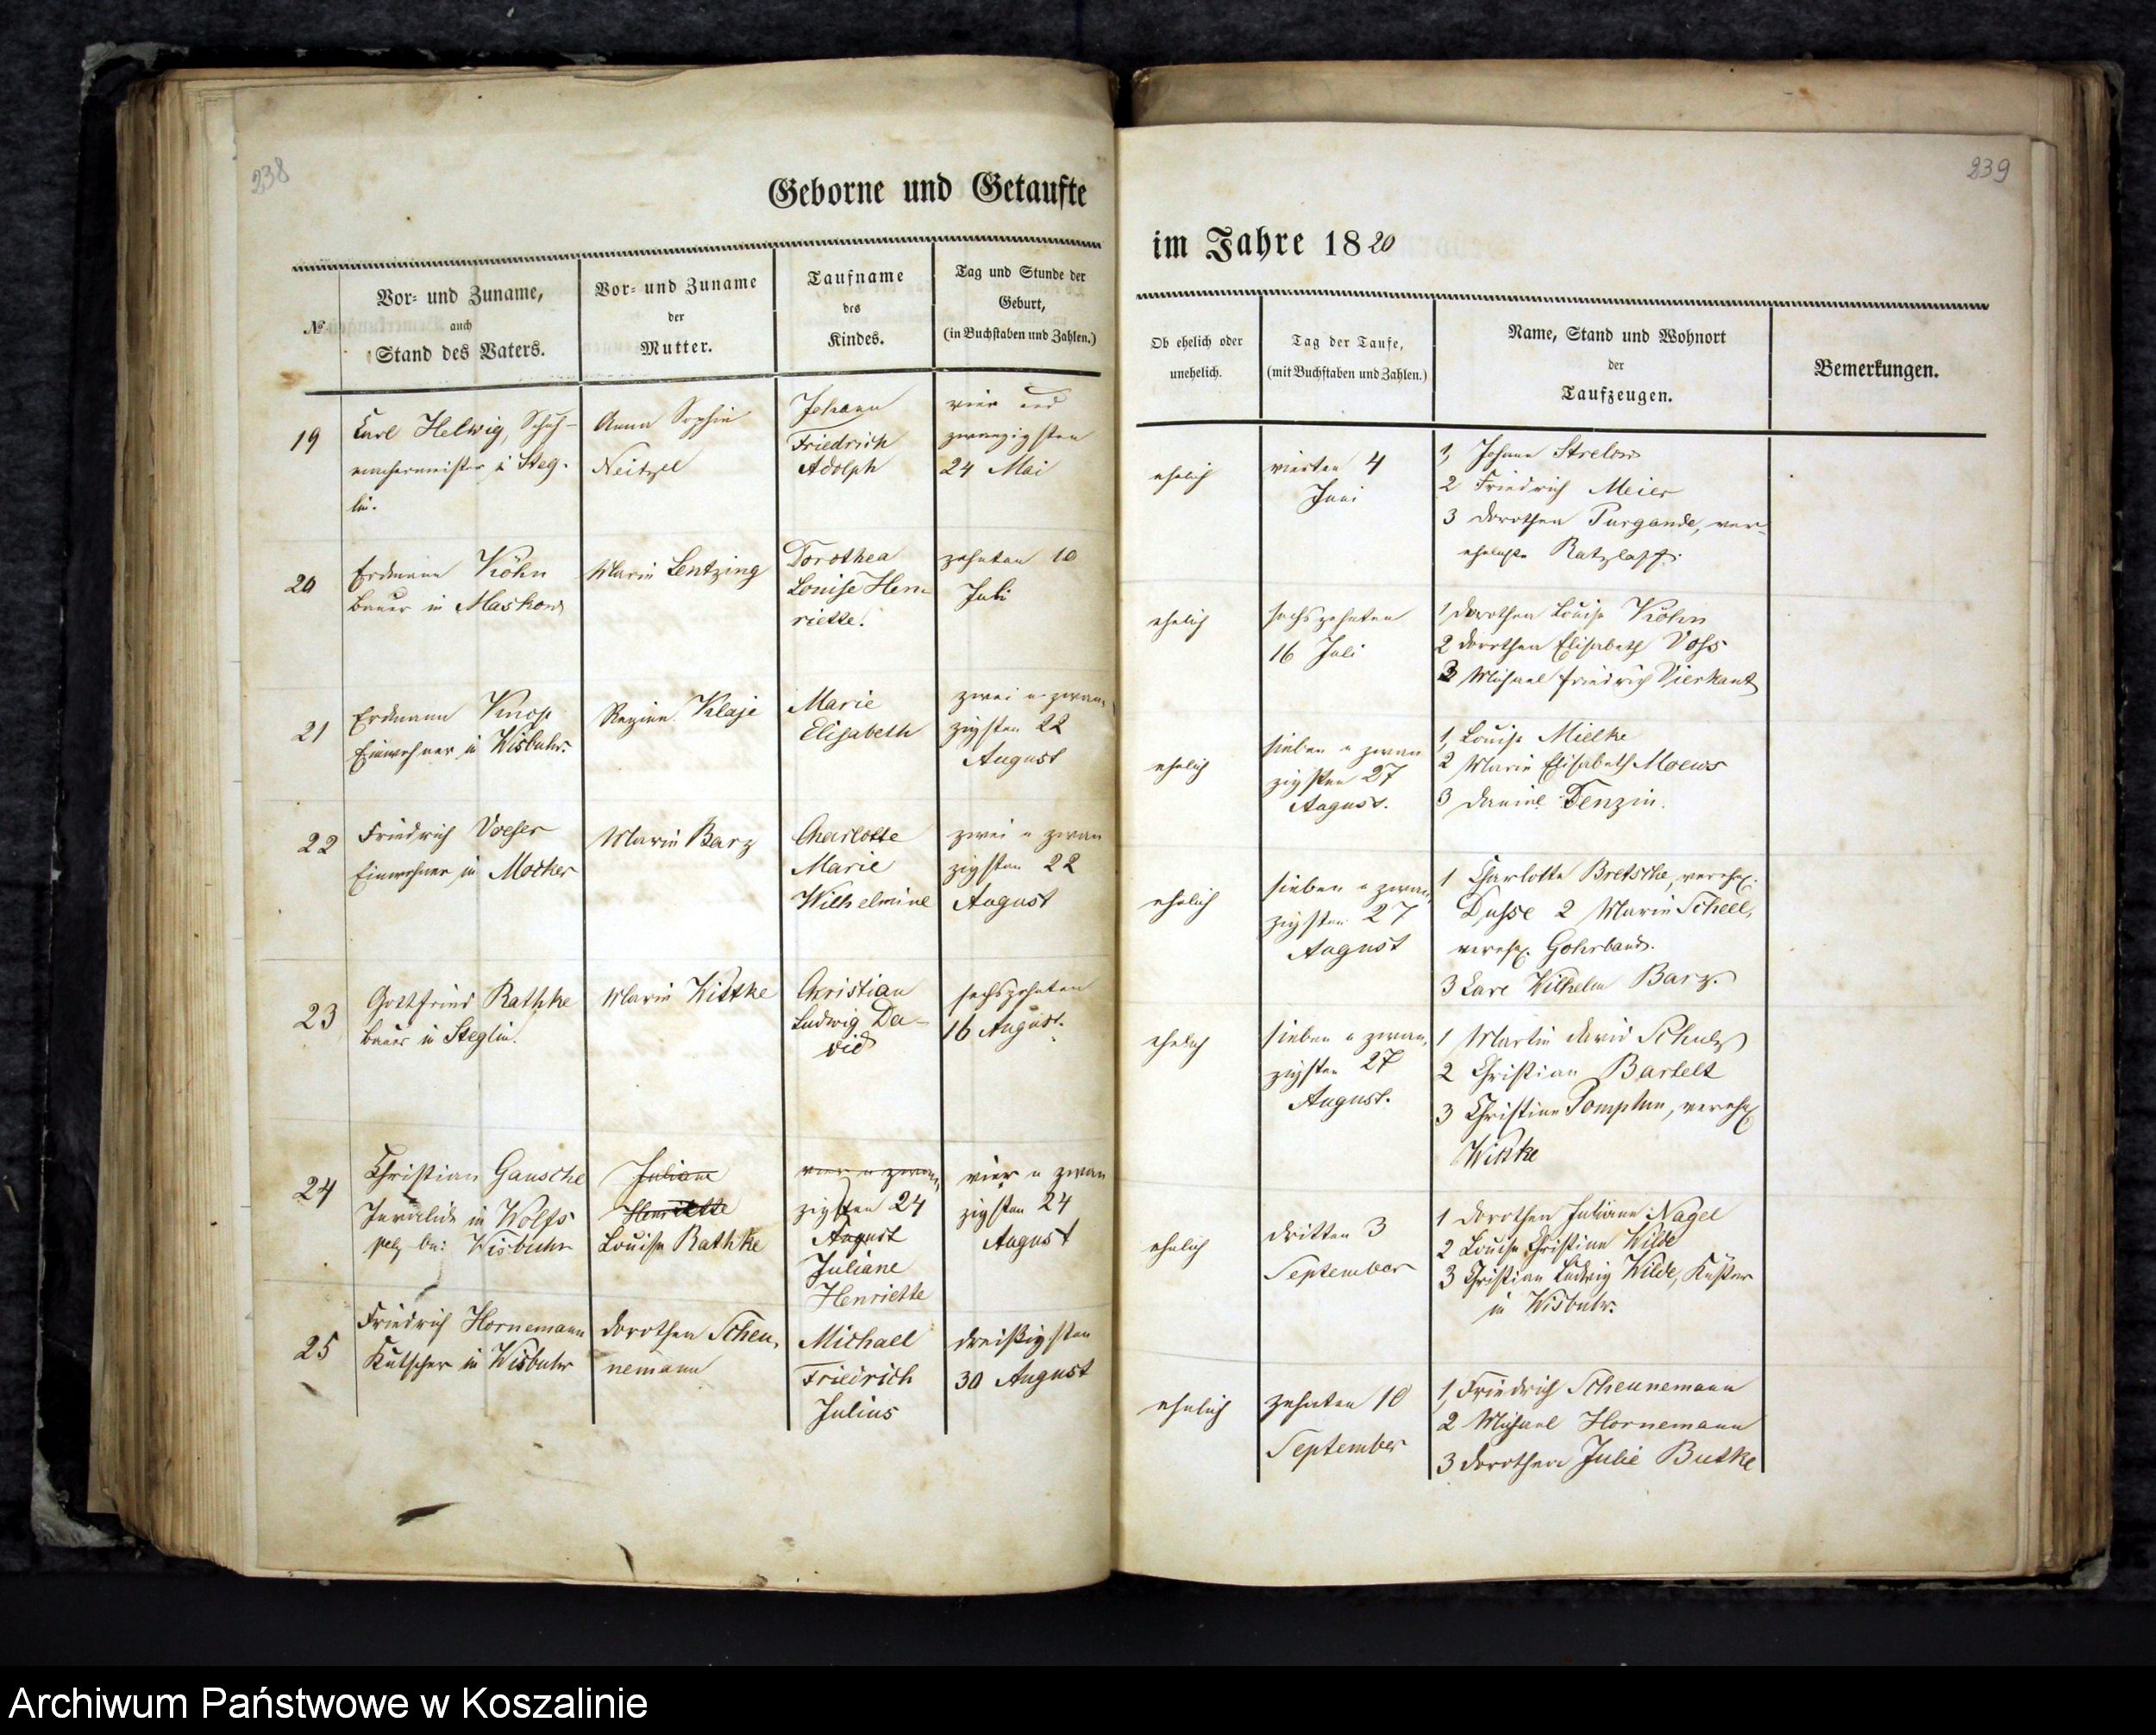 238
Geborne und Getaufte
№
Vor- und Zuname,
auch
Stand des Vaters.
Vor- und Zuname
der
Mutter.
Taufname
des
Kindes.
Tag und Stunde der
Geburt,
(in Buchstaben und Zahlen.)
19
Carl Helwig, Schuh-
machermeister i Steg-
lin.
Anna Sophie
Neitzel
Johann
Friedrich
Adolph
vier und
zwanzigsten
24 Mai
20
Erdmann Köhn
Bauer in Maskow
Marie Lentzing
Dorothea
Louise Hen-
riette.
zehnten 10
Juli
21
Erdmann Knop
Einwohner in Wisbuhr.
Regine Klaje
Marie
Elisabeth
zwei u zwan-
zigsten 22
August
22
Friedrich Voeser
Einwohner in Mocker
Marie Barz
Charlotte
Marie
Wilhelmine
zwei u zwan
zigsten 22
August
23
Gottfried Rathke
Bauer in Steglin.
Marie Wittke
Christian
Ludwig Da-
vid
sechszehnten
16 August.
24
Christian Gausche
Invalide in Wolfs
pelz bei Wisbuhr
Juliane
Henriette
Louise Rathke
vier u zwan-
zigsten 24
August
Juliane
Henriette
vier u zwan
zigsten 24
August
25
Friedrich Hornemann
Kutscher in Wisbuhr
Dorothea Scheu-
nemann
Michael
Friedrich
Julius
dreißigsten
30 August
239
im Jahre 1820
Ob ehelich oder
unehelich.
Tag der Taufe,
(mit Buchstaben und Zahlen.)
Name, Stand und Wohnort
der
Taufzeugen.
Bemerkungen.
ehelich
vierten 4
Juni
1, Johann Strelow
2 Friedrich Meier
3 Dorothea Purgande, ver-
ehelichte Ratzlaff.
ehelich
sechszehnten
16 Juli
1 Dorothea Louise Köhn
2 Dorothea Elisabeth Voss
3 Michael Friedrich Vierkant
ehelich
sieben u zwan
zigsten 27
August.
1, Louise Mielke
2 Marie Elisabeth Moews
3 Daniel Tenzin.
ehelich
sieben u zwan-
zigsten 27
August
1 Charlotte Bretschke, vereh.
Dusse 2 Marie Scheel,
vereh. Gohrband.
3 Carl Wilhelm Barz.
ehelich
sieben u zwan-
zigsten 27
August.
1 Martin David Schulz
2 Christian Bartelt
3 Christine Pomplun, vereh.
Wittke
ehelich
dritten 3
September
1 Dorothea Juliane Nagel
2 Louise Christine Wilde
3 Christian Ludwig Wilde, Küster
in Wisbuhr.
ehelich
zehnten 10
September
1, Friedrich Scheunemann
2 Michael Hornemann
3 Dorothea Julie Butke
Archiwum Państwowe w Koszalinie